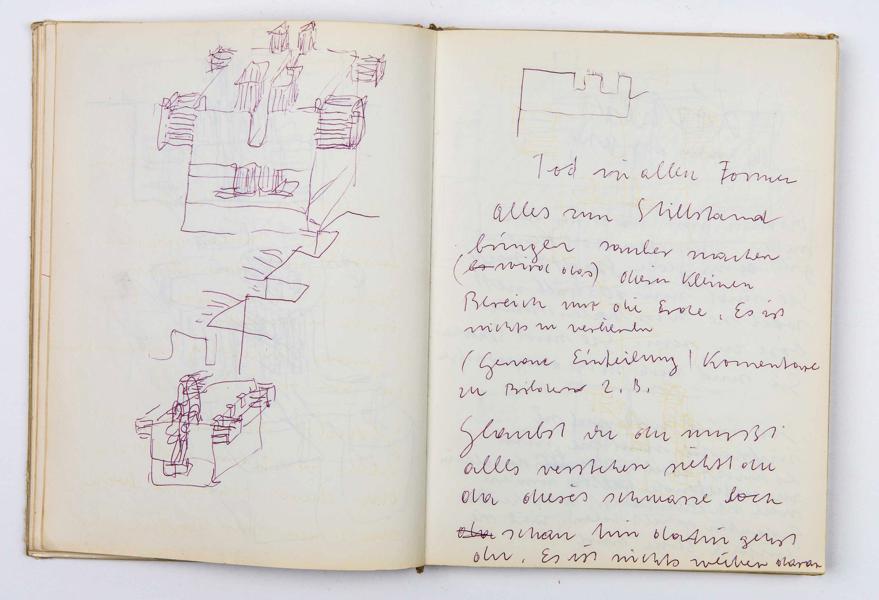 Tod in allen Formen
alles zum Stillstand
bringen sauber machen
(es wird das) diesen kleinen
Bereich nur die Erde. Es ist
nichts zu verlieren
(Genaue Einteilung) Komentare
zu Bildern z.B.
Glaubst du du mußt
alles verstehen siehst du
da dieses schwarze Loch
schau hin dahin gehst
du. Es ist nichts weiter daran